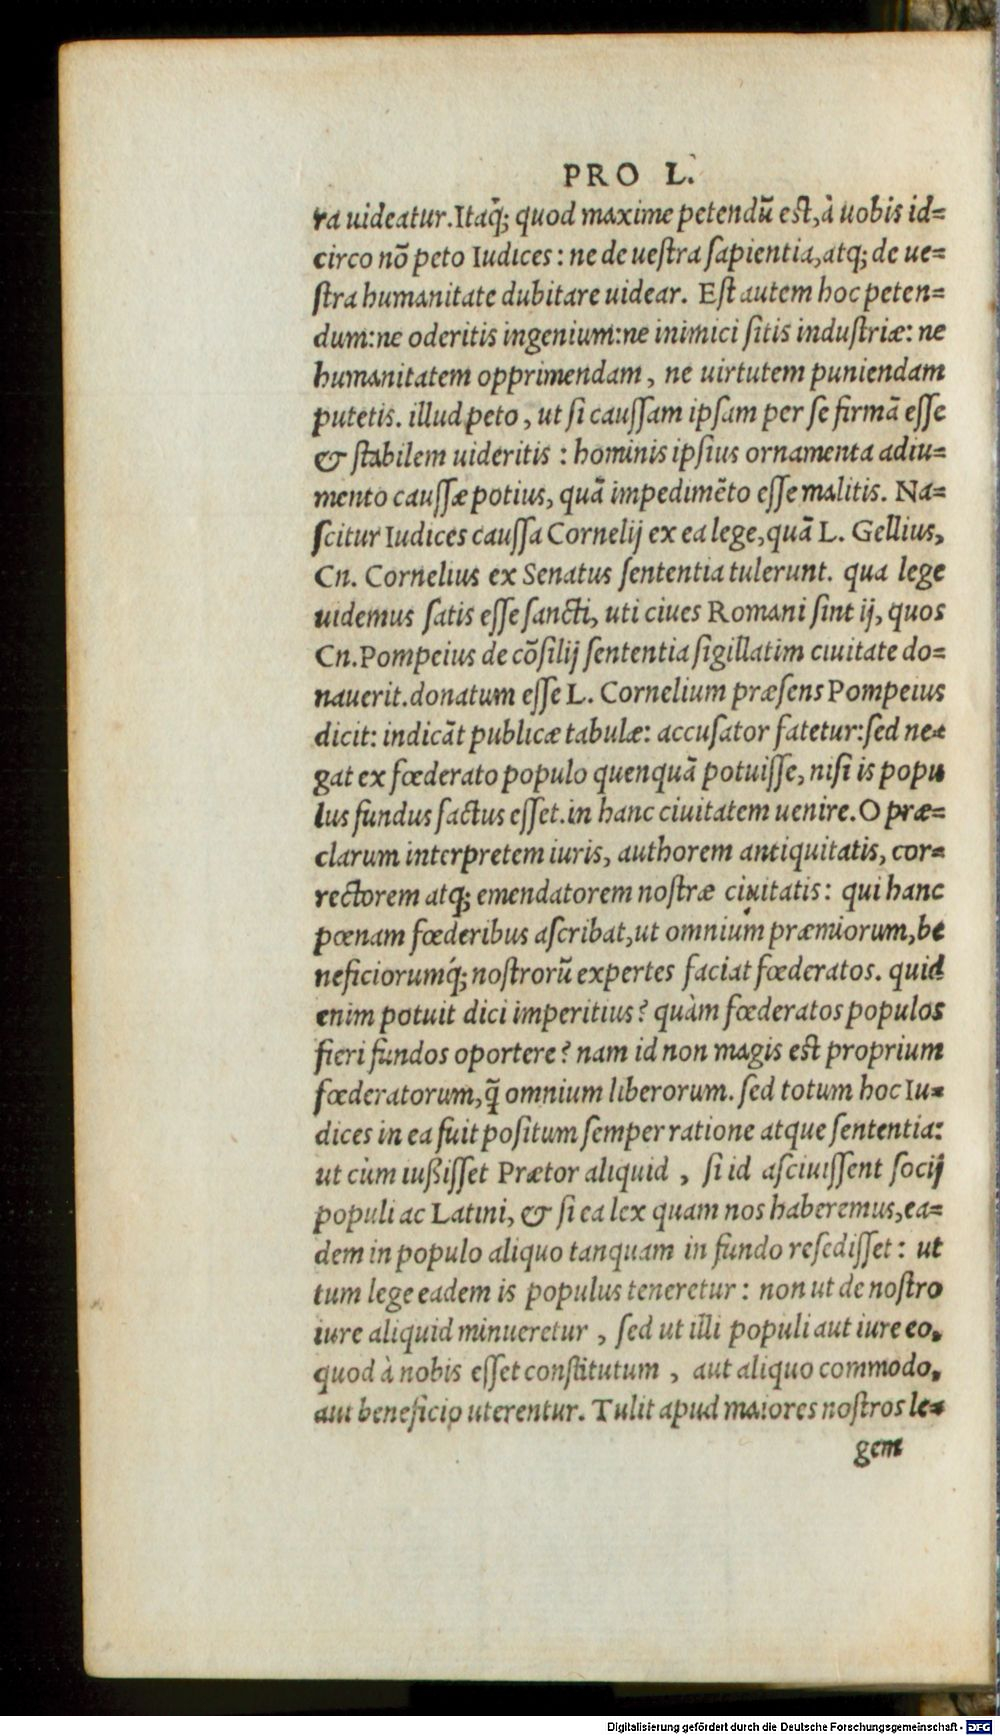 PRO L.
ra uideatur. Itaq́; quod maxime petendũ est, à uobis id=
circo nõ peto Iudices: ne de uestra sapientia, atq; de ue=
stra humanitate dubitare uidear. Est autem hoc peten=
dum: ne oderitis ingenium: ne inimici sitis industriæ: ne
humanitatem opprimendam, ne uirtutem puniendam
putetis. illud peto, ut si caussam ipsam per se firmã esse
& stabilem uideritis: hominis ipsius ornamenta adiu=
mento caussæ potius, quã impedimẽto esse malitis. Na=
scitur Iudices caussa Cornelij ex ea lege, quã L. Gellius,
Cn. Cornelius ex Senatus sententia tulerunt. qua lege
uidemus satis esse sancti, uti ciues Romani sint ij, quos
Cn. Pompeius de cõsilij sententia sigillatim ciuitate do=
nauerit. donatum esse L. Cornelium præsens Pompeius
dicit: indicãt publicæ tabulæ: accusator fatetur: sed ne=
gat ex fœderato populo quenquã potuisse, nisi is popu
lus fundus factus esset. in hanc ciuitatem uenire. O præ=
clarum interpretem iuris, authorem antiquitatis, cor=
rectorem atq; emendatorem nostræ ciuitatis: qui hanc
pœnam fœderibus ascribat, ut omnium præmiorum, be
neficiorumq́; nostrorũ expertes faciat fœderatos. quid
enim potuit dici imperitius? quàm fœderatos populos
fieri fundos oportere? nam id non magis est proprium
fœderatorum, q̃ omnium liberorum. sed totum hoc Iu=
dices in ea fuit positum semper ratione atque sententia:
ut cùm iußisset Prætor aliquid, si id asciuissent socij
populi ac Latini, & si ea lex quam nos haberemus, ea=
dem in populo aliquo tanquam in fundo resedisset: ut
tum lege eadem is populus teneretur: non ut de nostro
iure aliquid minueretur, sed ut illi populi aut iure eo,
quod à nobis esset constitutum, aut aliquo commodo,
aut beneficio uterentur. Tulit apud maiores nostros le=
gem
Digitalisierung gefördert durch die Deutsche Forschungsgemeinschaft - DFG